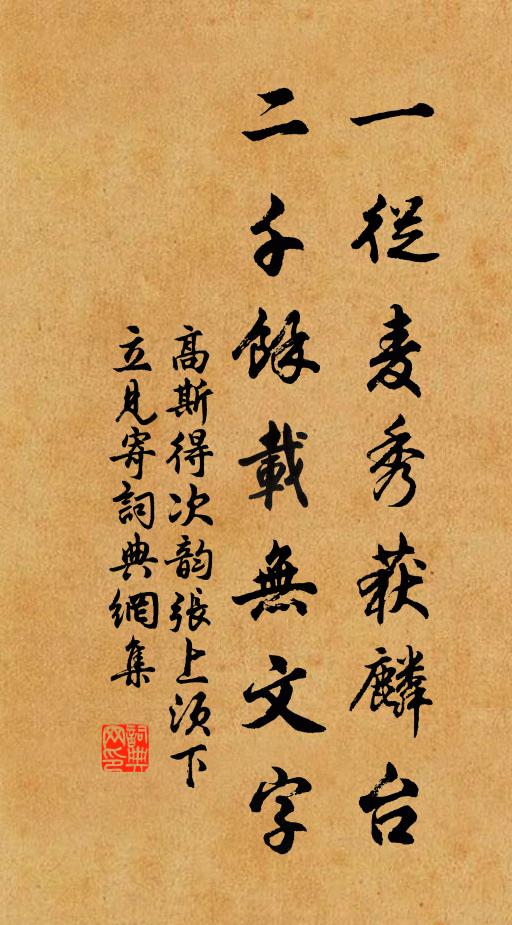 一從麦秀获麟台
二千餘載無文字
高斯得次韵張上須下
立見寄詞典網集
詞典
网印